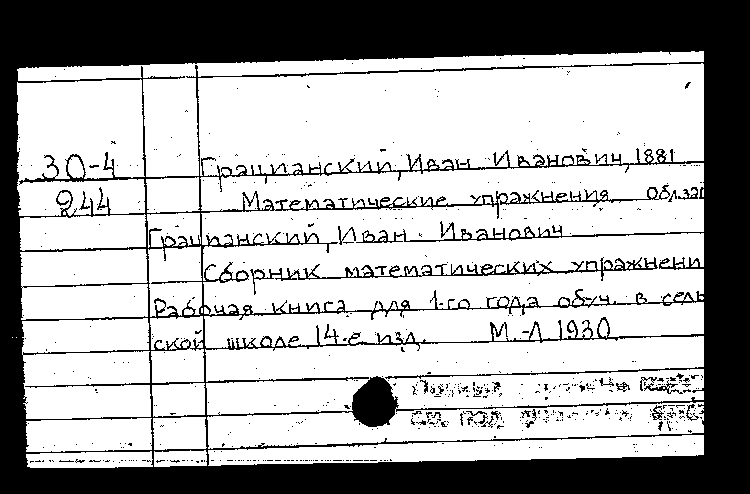 30-4 Грацианский, Иван Иванович, 1881
244 Математические упражнения обл.заг
Грацианский, Иван Иванович
Сборник математических упражнени
Рабочая книга для 1-го года обуч. в сель
ской школе. 14-е изд. М.-Л. 1930
см. под